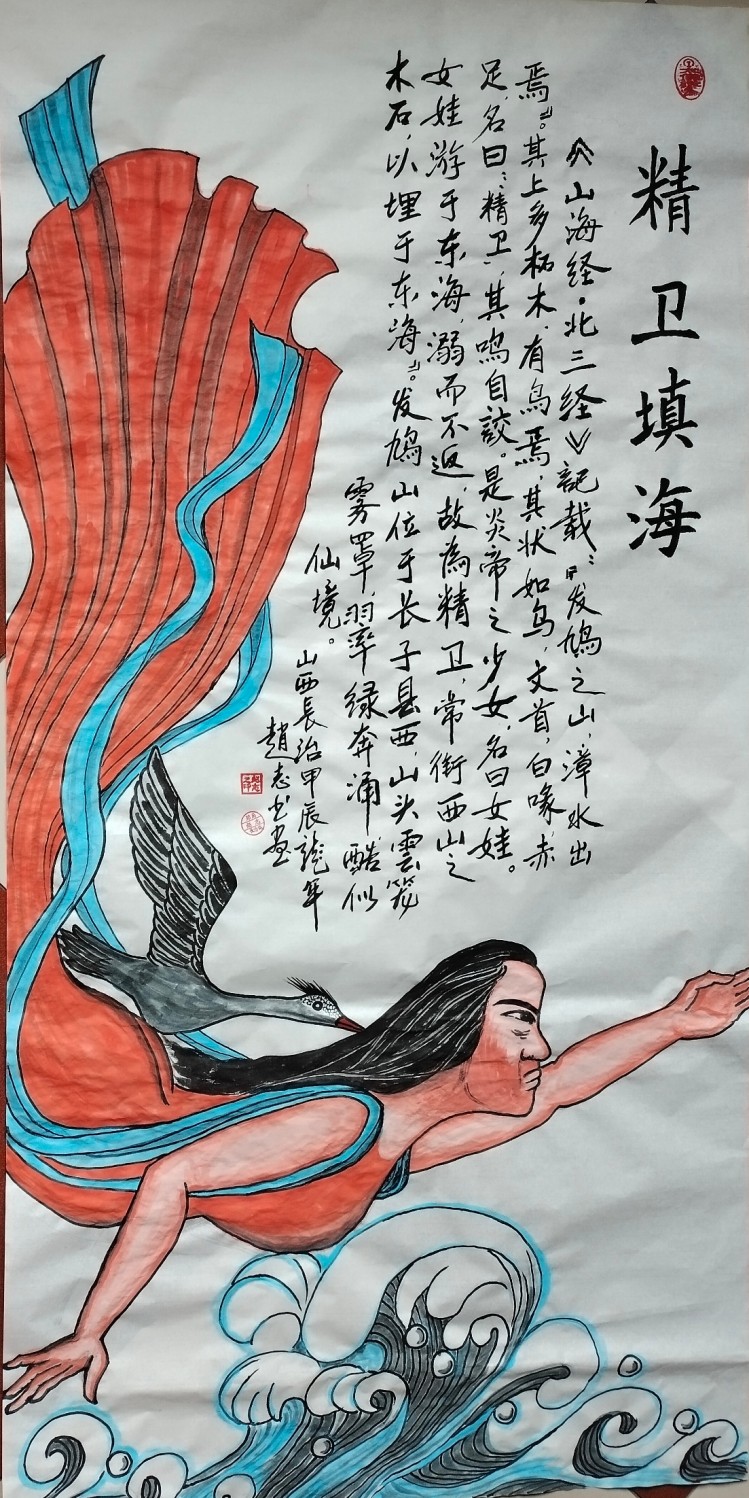 精卫填海
《山海经·北三经》記载：“发鸠之山，漳水出
焉”。其上多柘木，有鸟焉，其状如乌，文首，白喙，赤
足，名曰：“精卫”，其鸣自詨。是炎帝之少女，名曰女娃。
女娃游于东海，溺而不返，故為精卫，常衔西山之
木石，以埋于东海”。发鸠山位于长子县西，山头雲笼
雾罩，翠绿奔涌，酷似
仙境。山西長治甲辰龍年
趙志书画